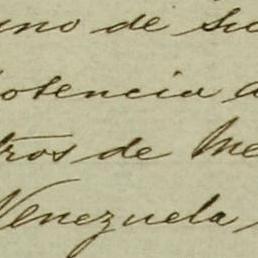 uno de su
otencia a
tros de Me
Venezuela